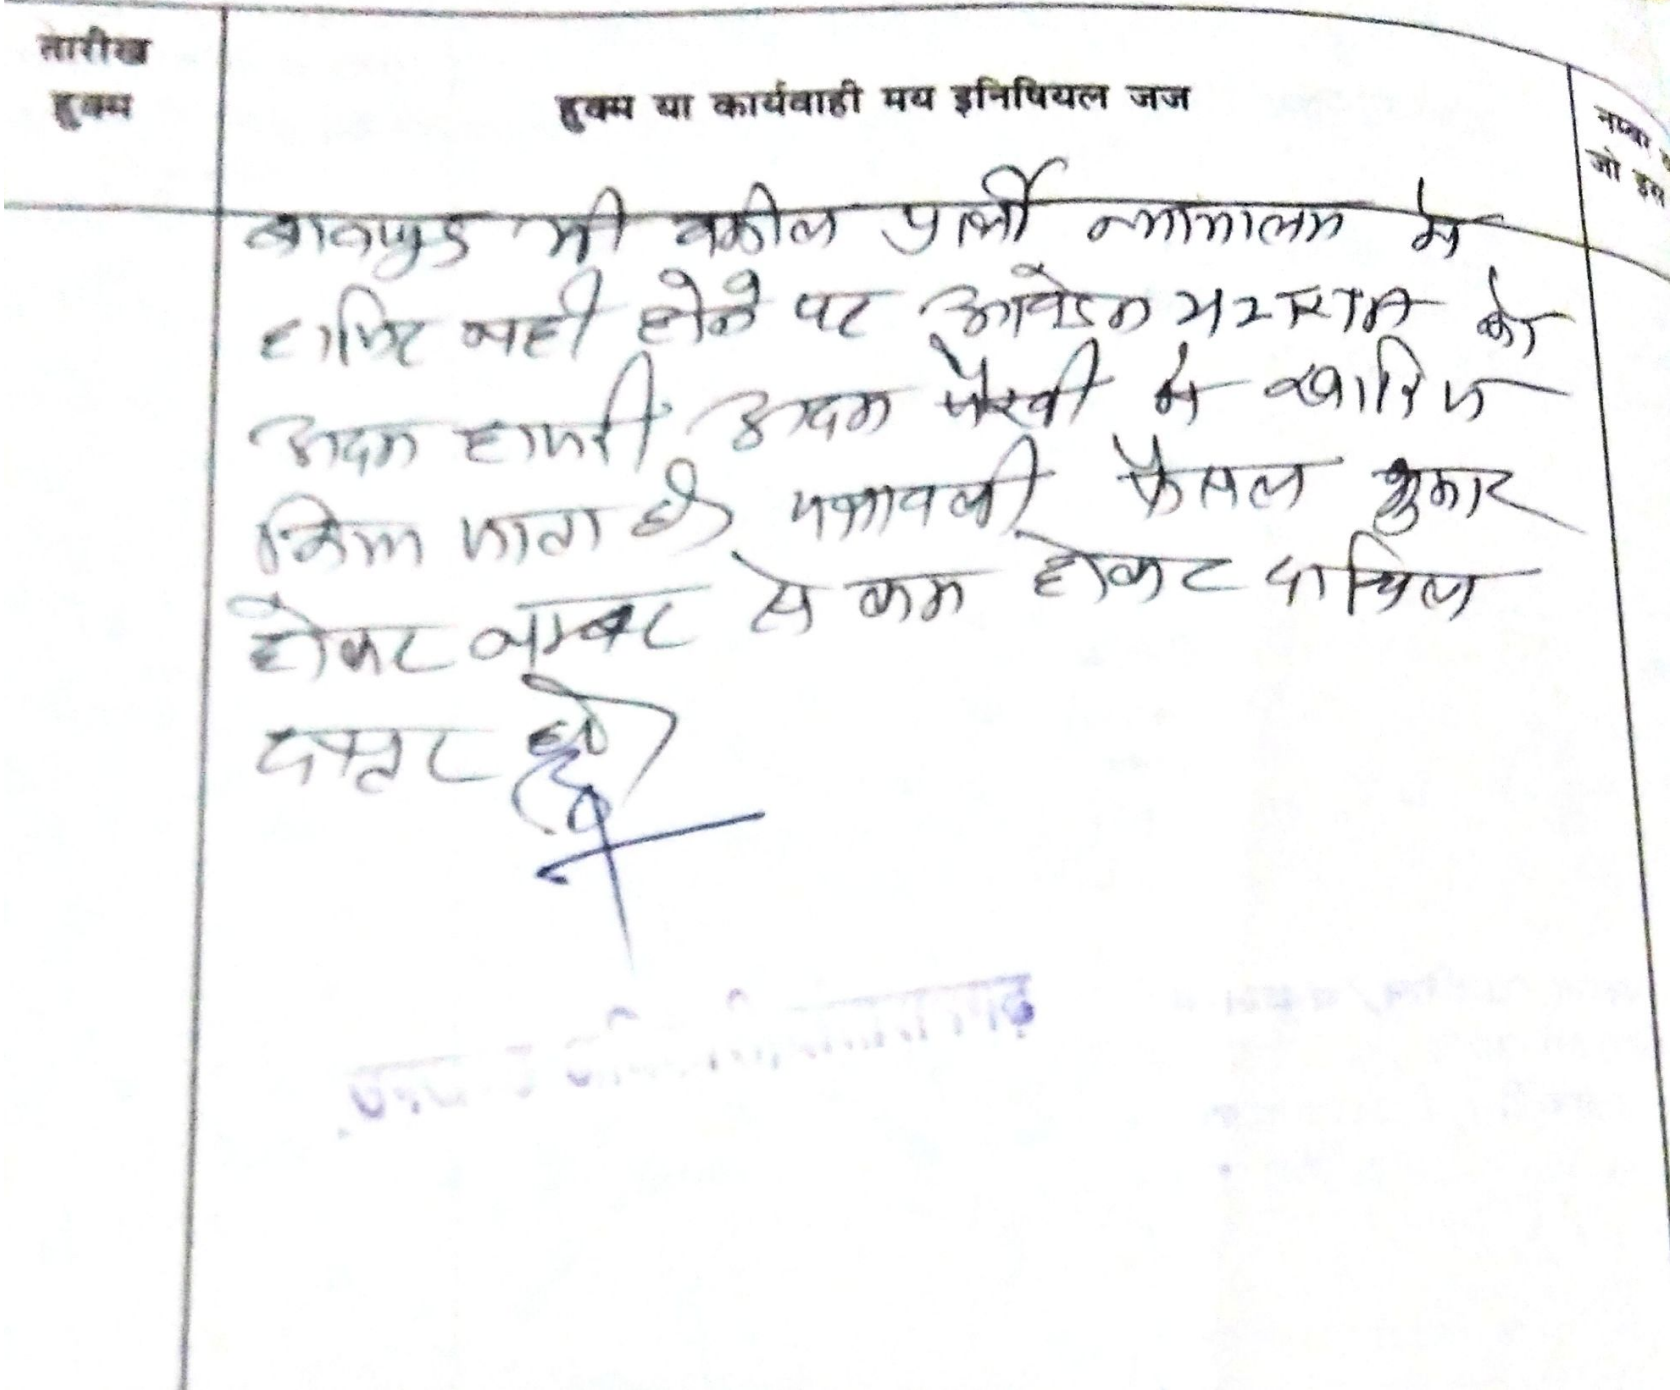 तारीख
हुक्म
हुक्म या कार्यवाही मय इनिषियल जज
नम्बर
जो इस
बावजुद भी वकील प्रार्थी न्यायालय में
हाजिर नही होने पर आवेदन को
अदम हाजरी अदम पैरवी में खारिज
किया जाता है पत्रावली फैसल शुमार
होकर नम्बर से कम होकर दाखिल
दफ्तर हो